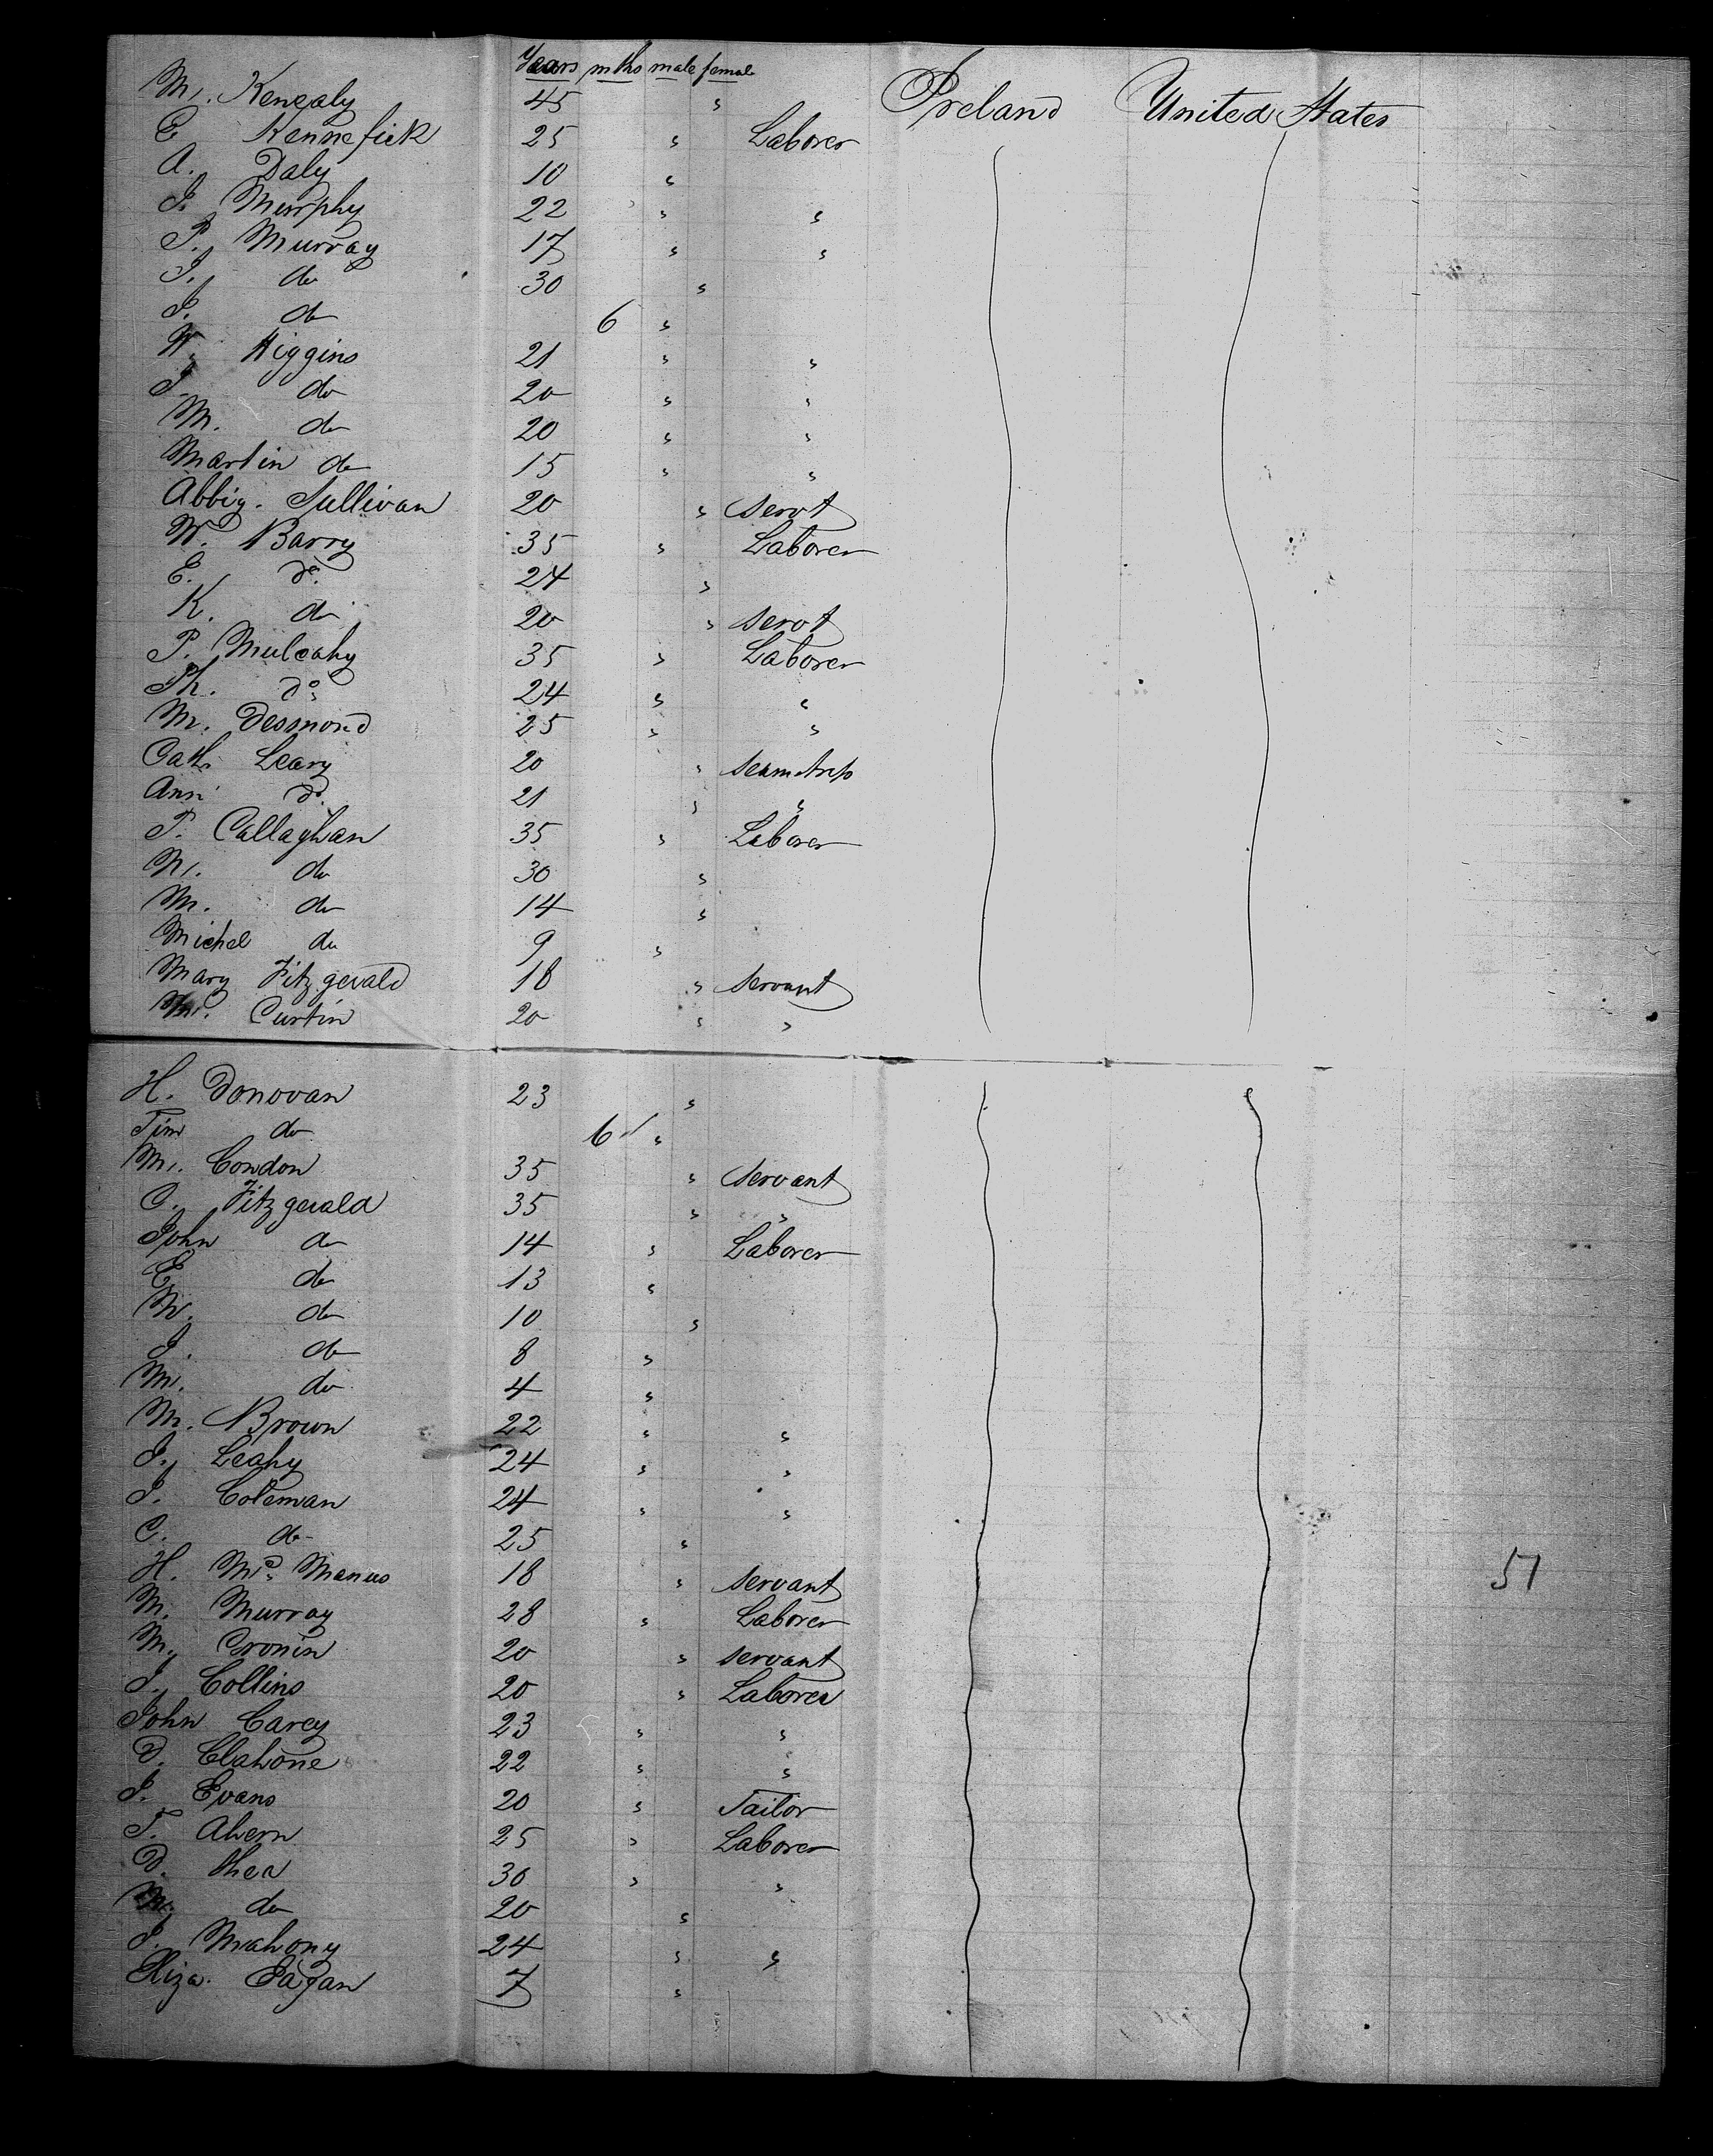 Years mths male female
M. Kenealy 45 " Ireland United States
E Kennefick 25 " Laborer
A. Daly 10 "
J. Murphy 22 " "
P. Murray 17 " "
J. do 30 "
J. do 6 "
W. Higgins 21 " "
J. do 20 " "
M. do 20 " "
Martin do 15 " "
Abbig. Sullivan 20 " Servt
W. Barry 35 " Laborer
E. do. 24 "
K. do 20 " Servt
P. Mulcahy 35 " Laborer
Th. do 24 " "
M. Desmond 25 " "
Cath Leary 20 " Seamstress
Ann do 21 " "
P. Callaghan 35 " Laborer
M. do 30 "
M. do 14 "
Michel do 9 "
Mary Fitzgerald 18 " Servant
M. Curtin 20 " "
H. Donovan 23 "
Tim do 6 "
M. Condon 35 " Servant
C. Fitzgerald 35 " "
John do 14 " Laborer
E do 13 "
M. do 10 "
J. do 8 "
M. do 4 "
M. Brown 22 " "
J. Leahy 24 " "
J. Coleman 24 " "
C. do 25 "
H. Mc. Manus 18 " Servant
M. Murray 28 " Laborer
M. Cronin 20 " Servant
J. Collins 20 " Laborer
John Carey 23 " "
D. Clahone 22 " "
J. Evans 20 " Tailor
T. Ahern 25 " Laborer
D. Shea 30 " "
do 20 "
J. Mahony 24 " "
Eliza. 7 "
51